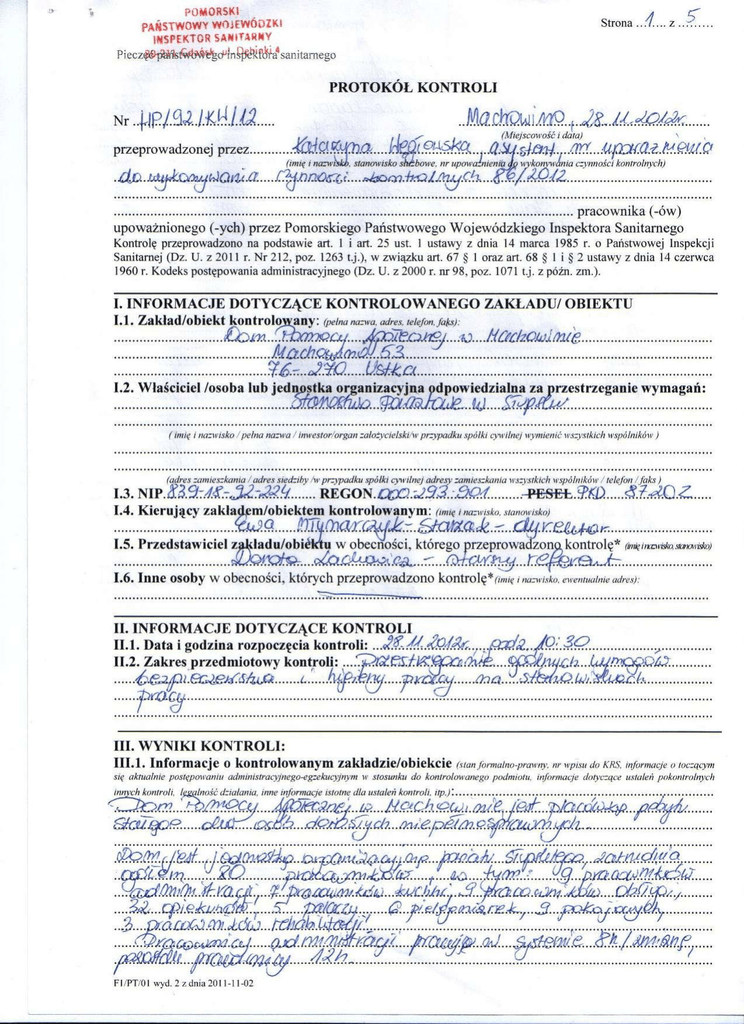 POMORSKI
PAŃSTWOWY WOJEWÓDZKI
INSPEKTOR SANITARNY
80-211 Gdańsk, ul. Dębinki 4
Pieczęć państwowego inspektora sanitarnego
Strona ...1.... z ..5........
PROTOKÓŁ KONTROLI
Nr HP/92/KW/12
Machowino, 28.11.2012r.
(Miejscowość i data)
przeprowadzonej przez Katarzyna asystent, nr upoważnienia
(imię i nazwisko, stanowisko służbowe, nr upoważnienia do wykonywania czynności kontrolnych)
do wykonywania czynności kontrolnych 86/2012
pracownika (-ów)
upoważnionego (-ych) przez Pomorskiego Państwowego Wojewódzkiego Inspektora Sanitarnego
Kontrolę przeprowadzono na podstawie art. 1 i art. 25 ust. 1 ustawy z dnia 14 marca 1985 r. o Państwowej Inspekcji
Sanitarnej (Dz. U. z 2011 r. Nr 212, poz. 1263 t.j.), w związku art. 67 § 1 oraz art. 68 § 1 i § 2 ustawy z dnia 14 czerwca
1960 r. Kodeks postępowania administracyjnego (Dz. U. z 2000 r. nr 98, poz. 1071 t.j. z późn. zm.).
I. INFORMACJE DOTYCZĄCE KONTROLOWANEGO ZAKŁADU/ OBIEKTU
I.1. Zakład/obiekt kontrolowany: (pełna nazwa, adres, telefon, faks):
Dom Pomocy Społecznej w Machowinie
Machowino 53
76-270 Ustka
I.2. Właściciel /osoba lub jednostka organizacyjna odpowiedzialna za przestrzeganie wymagań:
Starostwo Powiatowe w Słupsku
( imię i nazwisko / pełna nazwa / inwestor/organ założycielski/w przypadku spółki cywilnej wymienić wszystkich wspólników )
(adres zamieszkania / adres siedziby /w przypadku spółki cywilnej adresy zamieszkania wszystkich wspólników / telefon / faks )
I.3. NIP 839-18-92-224 REGON 000-293-901 PESEL PKD 87.20Z
I.4. Kierujący zakładem/obiektem kontrolowanym: (imię i nazwisko, stanowisko)
Ewa Młynarczyk-Starzak - dyrektor
I.5. Przedstawiciel zakładu/obiektu w obecności, którego przeprowadzono kontrolę* (imię i nazwisko, stanowisko)
Dorota - starszy referent
I.6. Inne osoby w obecności, których przeprowadzono kontrolę* (imię i nazwisko, ewentualnie adres):
II. INFORMACJE DOTYCZĄCE KONTROLI
II.1. Data i godzina rozpoczęcia kontroli: 28.11.2012r. godz. 10:30
II.2. Zakres przedmiotowy kontroli: Przestrzeganie ogólnych wymogów
bezpieczeństwa i higieny pracy na stanowiskach
pracy
III. WYNIKI KONTROLI:
III.1. Informacje o kontrolowanym zakładzie/obiekcie (stan formalno-prawny, nr wpisu do KRS, informacje o toczącym
się aktualnie postępowaniu administracyjnego-egzekucyjnym w stosunku do kontrolowanego podmiotu, informacje dotyczące ustaleń pokontrolnych
innych kontroli, legalność działania, inne informacje istotne dla ustaleń kontroli, itp.):
Dom Pomocy Społecznej w Machowinie jest placówką pobytu
stałego dla osób dorosłych niepełnosprawnych.
Dom jest jednostką organizacyjną powiatu słupskiego, zatrudnia
ogółem 80 pracowników, w tym: 9 pracowników
administracji, 7 pracowników kuchni, 9 pracowników obsługi,
32 opiekunów, 5 palaczy, 6 pielęgniarek, 9 pokojowych,
3 pracowników rehabilitacji.
Pracownicy administracji pracują w systemie 8h/zmianę,
pozostali pracownicy 12h.
F1/PT/01 wyd. 2 z dnia 2011-11-02